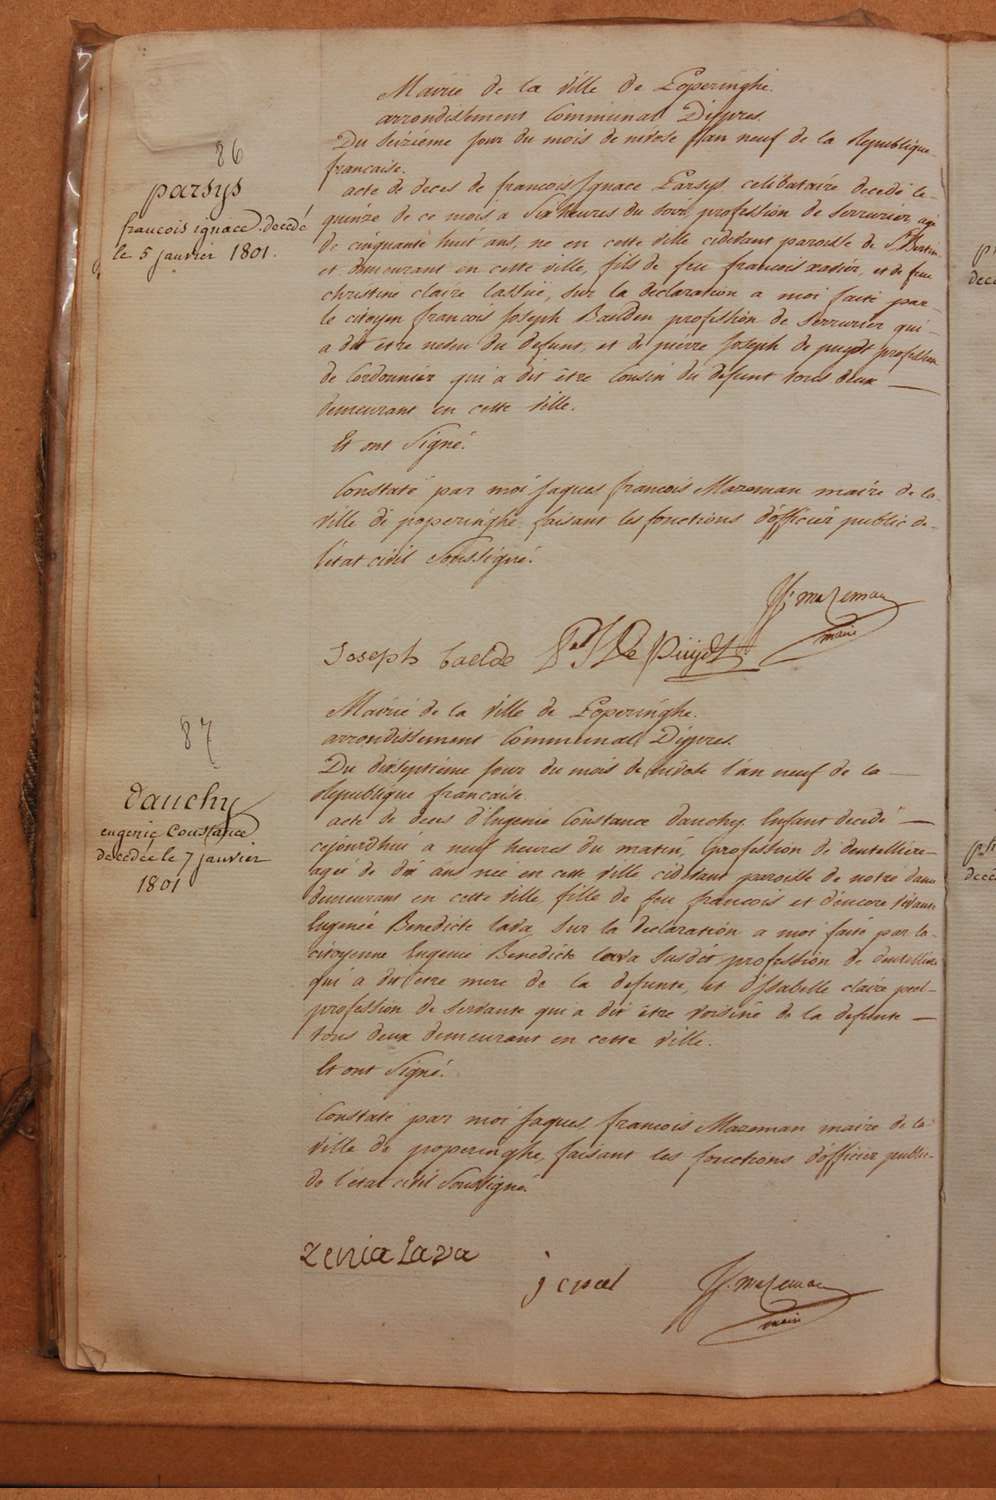 86
parsys
francois ignace. decedé
le 5 janvier 1801.
Mairie de la ville de Poperinghe.
arrondissement Communal D'ypres.
Du seizième jour du mois de nivose l'an neuf de la République
française.
acte de deces de francois Ignace Parsys. celibataire decedé le
quinze de ce mois a six heures du soir, profession de serrurier, agé
de cinquante huit ans, né en cette ville cidevant paroisse de St Bertin
et demeurant en cette ville, fils de feu francois xavier, et de feue
christine claire, sur la declaration a moi faite par
le citoyen francois Joseph Baelden profession de serrurier qui
a dit etre neveu du defunt, et de pierre Joseph de puydt profession
de Cordonnier qui a dit être Cousin du defunt tous deux
demeurant en cette ville.
Et ont Signé.
Constaté par moi Jaques francois Mazeman maire de la
ville de poperinghe faisant les fonctions d'officier public de
l'etat civil Soussigné.
JF. mazeman
maire
Joseph baelde
De Puijdt
87
dauchy
eugenie Constance
decedée le 7 janvier
1801
Mairie de la ville de Poperinghe.
arrondissement Communal D'ypres.
Du dixseptième jour du mois de nivose l'an neuf de la
République francaise
acte de deces d'Eugenie Constance dauchy. Enfant decedé
cejourdhui a neuf heures du matin, profession de dentellière
agée de dix ans née en cette ville cidevant paroisse de notre dame
demeurant en cette ville, fille de feu francois et d'encore vivante
Eugenie Benedicte lava, Sur la declaration a moi faite par la
citoyenne Eugenie Benedicte lava Susdit profession de dentellière
qui a dit être mere de la defunte, et d'Isabelle claire poel
profession de servante qui a dit être voisine de la defunte
tous deux demeurant en cette ville.
Et ont Signé.
Constaté par moi Jaques francois Mazeman maire de la
ville de poperinghe, faisant les fonctions d'officier public
de l'etat civil Soussigné.
zenia Lava
j c poel
JF. mazeman
maire